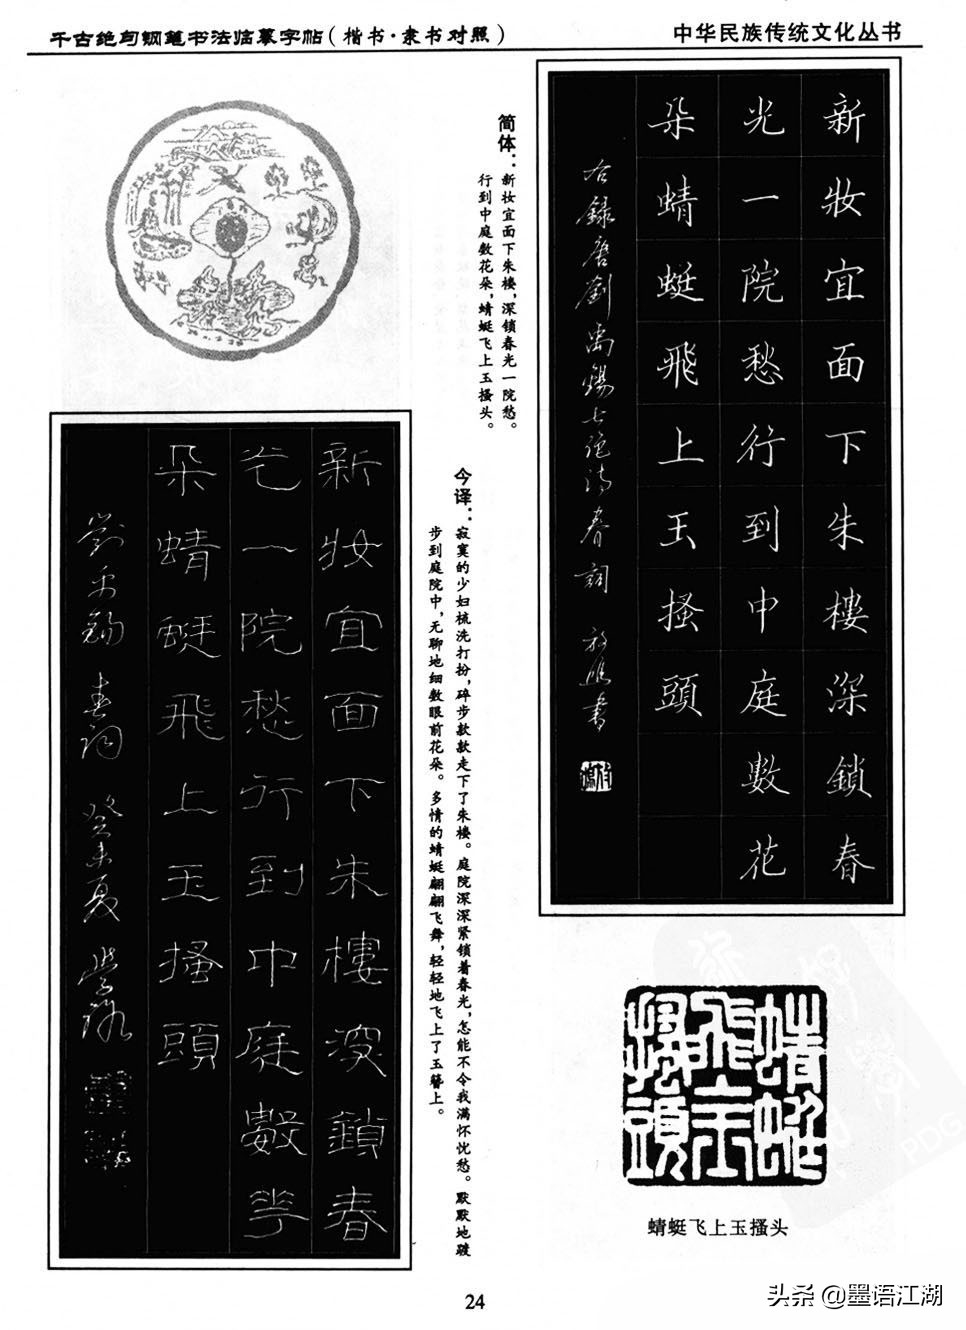 千古绝句钢笔书法临摹字帖(楷书·隶书对照)
中华民族传统文化丛书
新妝宜面下朱樓深鎖春
光一院愁行到中庭數花
朵蜻蜓飛上玉搔頭
右錄唐劉禹錫七絕詩春詞
简体:新妆宜面下朱楼,深锁春光一院愁。
行到中庭数花朵,蜻蜓飞上玉搔头。
今译:寂寞的少妇梳洗打扮,碎步款款走下了朱楼。庭院深深紧锁着春光,怎能不令我满怀忧愁。默默地踱
步到庭院中,无聊地细数眼前花朵。多情的蜻蜓翩翩飞舞,轻轻地飞上了玉簪上。
新妝宜面下朱樓深鎖春
光一院愁行到中庭數花
朵蜻蜓飛上玉搔頭
劉禹錫春詞癸未夏
蜻蜓
飛上玉
搔頭
蜻蜓飞上玉搔头
24
头条@墨语江湖